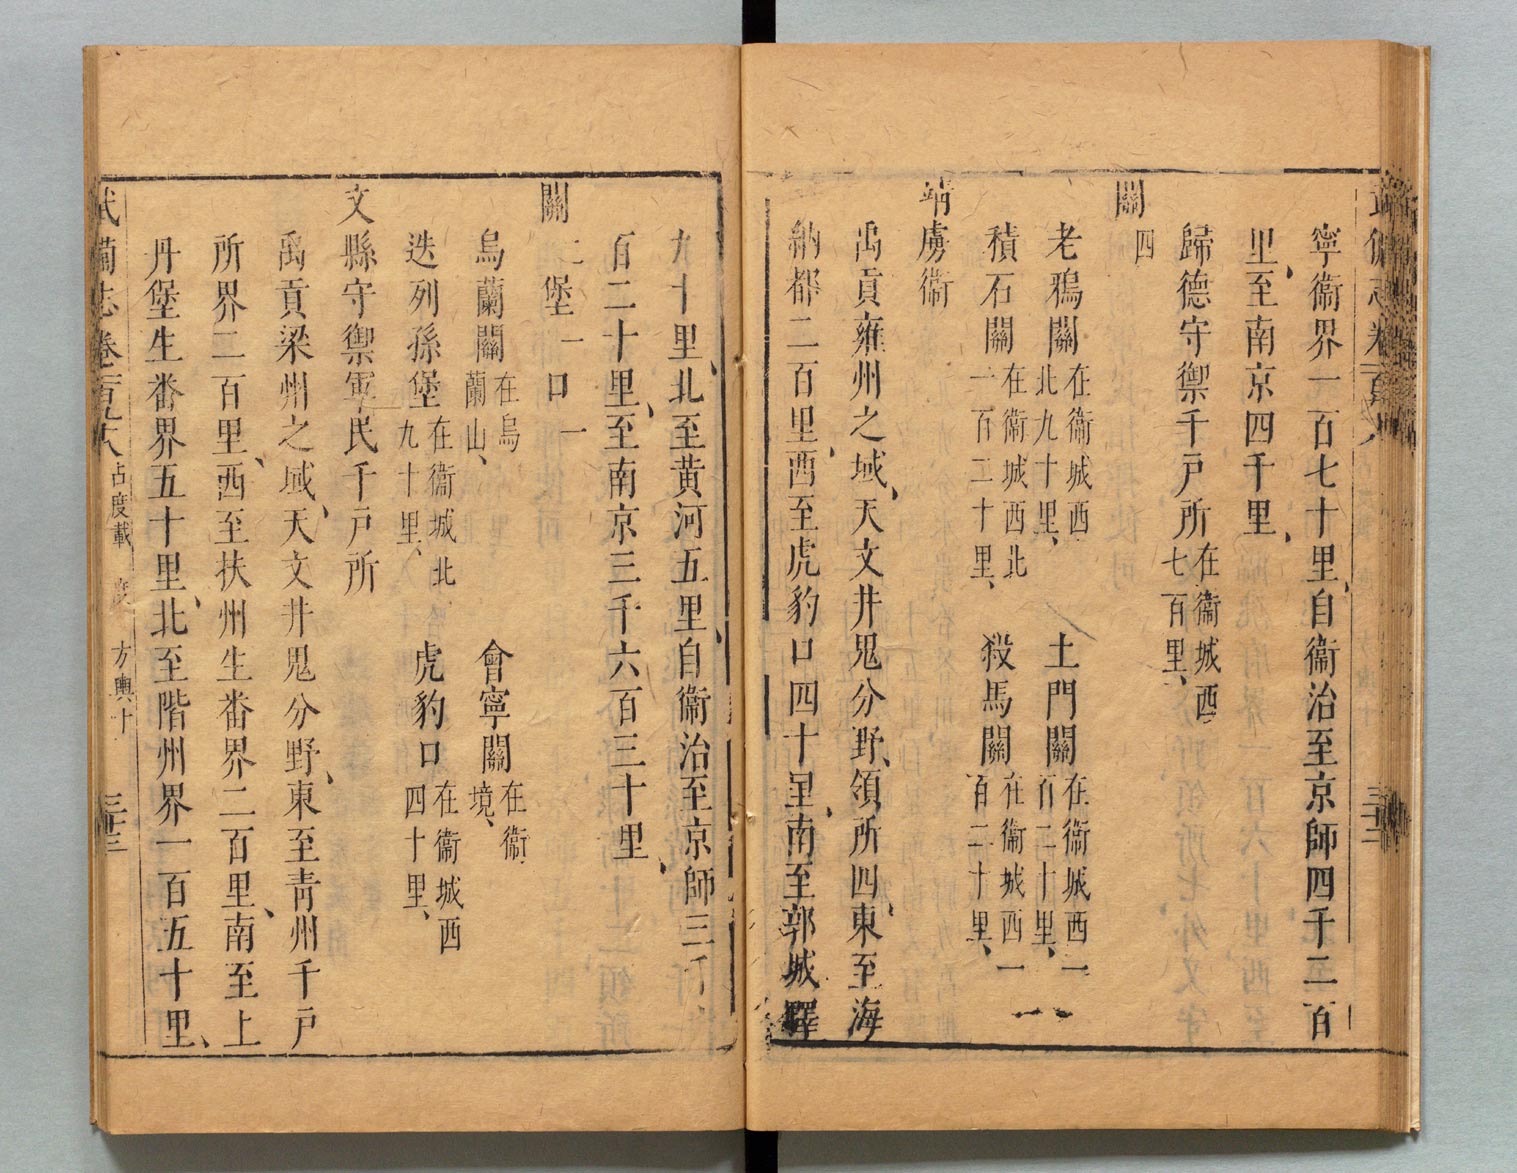 寧衞界一百七十里、自衞治至京師四千二百
里、至南京四千里、
歸德守禦千戶所在衞城西七百里、
關四
老鴉關在衞城西北九十里、土門關在衞城西一百二十里、
積石關在衞城西北一百二十里、殺馬關在衞城西一百二十里、
靖虜衞
禹貢雍州之域、天文井鬼分野、領所四、東至海
納都二百里、西至虎豹口四十里、南至郭城驛
九十里、北至黃河五里、自衞治至京師三千七
百二十里、至南京三千六百三十里、
關二堡一口一
烏蘭關在烏蘭山、會寧關在衞境、
迭列孫堡在衞城北九十里、虎豹口在衞城西四十里、
文縣守禦軍民千戶所
禹貢梁州之域、天文井鬼分野、東至靑州千戶
所界二百里、西至扶州生番界二百里、南至上
丹堡生番界五十里、北至階州界一百五十里、
武備志卷 占度載 度 方輿十 三十三